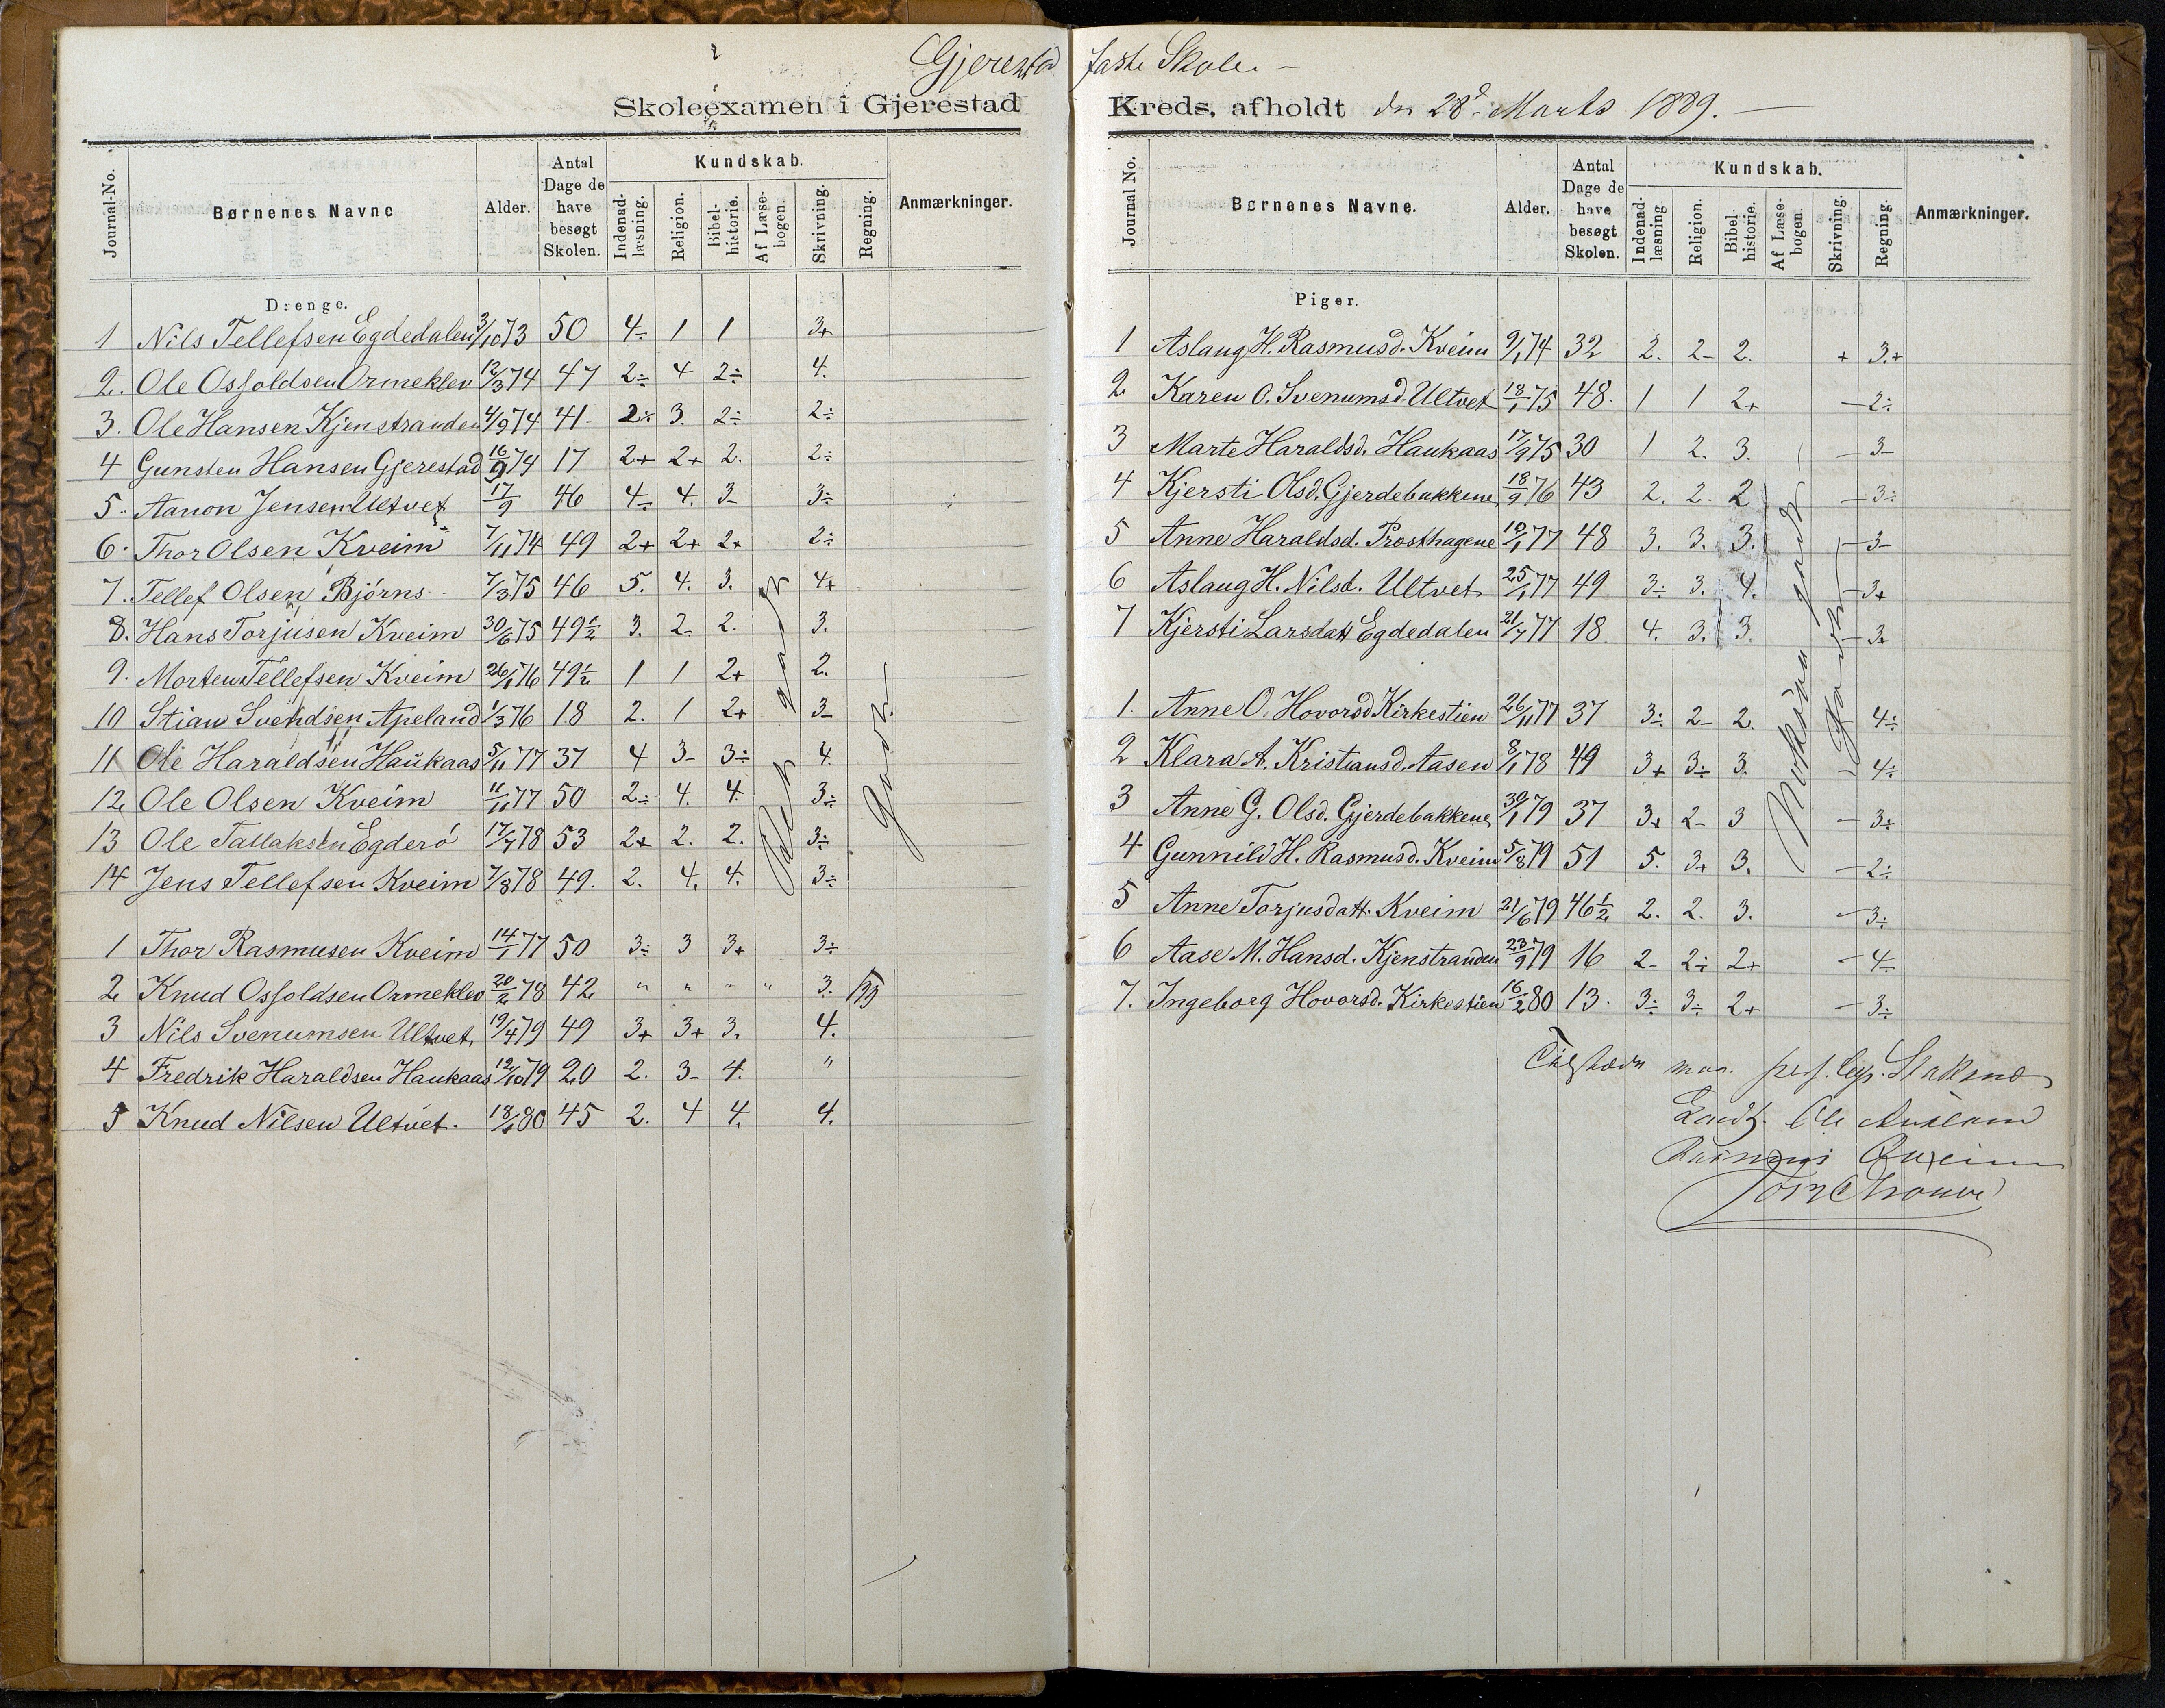 Gjerestad faste Skole. –
Skoleexamen i Gjerestad Kreds, afholdt den 28de Marts 1889. –
Journal-No. Børnenes Navne Alder. Antal Dage de have besøgt Skolen. Kundskab. Indenad-læsning. Religion. Bibel-historie. Af Læse-bogen. Skrivning. Regning. Anmærkninger.
Drenge.
1 Nils Tellefsen Egdedalen 3/10 73 50 4÷ 1 1 3+
2. Ole Osfoldsen Ormeklev 12/3 74 47 2÷ 4 2÷ 4.
3. Ole Hansen Kjenstranden 4/9 74 41- 2÷ 3. 2÷ 2÷
4 Gunsten Hansen Gjerestad 16/9 74 17 2+ 2+ 2. 2÷
5. Aanon Jensen Ultvet 17/9 46 4÷ 4. 3- 3÷
6. Thor Olsen Kveim 7/11 74 49 2+ 2+ 2+ 2÷
7. Tellef Olsen Bjørns 7/3 75 46 5. 4. 3. 4+
8. Hans Torjusen Kveim 30/6 75 49½ 3. 2- 2. 3.
9. Morten Tellefsen Kveim 26/1 76 49½ 1 1 2+ 2.
10 Stian Svendsen Apeland 1/3 76 18 2. 1 2+ 3-
11 Ole Haraldsen Haukaas 5/11 77 37 4 3- 3÷ 4.
12 Ole Olsen Kveim 11/11 77 50 2÷ 4. 4. 3÷
13 Ole Tallaksen Egderö 17/7 78 53 2+ 2. 2. 3÷
14 Jens Tellefsen Kveim 7/8 78 49. 2. 4. 4. 3÷
godt.
1 Thor Rasmusen Kveim 14/1 77 50 3÷ 3 3+ 3÷
2 Knud Osfoldsen Ormeklev 20/2 78 42 " " " " 3.
3 Nils Svenumsen Ultvet 19/4 79 49 3+ 3+ 3. 4.
4 Fredrik Haraldsen Haukaas 12/10 79 20 2. 3- 4. "
5 Knud Nilsen Ultvet. 80 45 2. 4 4. 4.
Journal No. Børnenes Navne. Alder. Antal Dage de have besøgt Skolen. Kundskab. Indenad-læsning Religion. Bibel-historie. Af Læse-bogen. Skrivning. Regning. Anmærkninger.
Piger.
1 Aslaug H. Rasmusd. Kveim 9/1 74 32 2. 2- 2. + 3.+
2 Karen O. Svenumsd. Ultvet 18/1 75 48. 1 1 2+ – 2÷
3 Marte Haraldsd. Haukaas 17/9 75 30 1 2. 3. – 3-
4 Kjersti Olsd. Gjerdebakkene 18/9 76 43 2. 2. 2 – 3÷
5 Anne Haraldsd. Prosthagene 10/1 77 48 3. 3. 3. – 3-
6 Aslaug H. Nilsd. Ultvet 25/1 77 49 3÷ 3. 4. – 3+
7 Kjersti Larsdatt Egdedalen 21/7 77 18 4. 3. 3. – 3+
godt
1. Anne O. Hovorsd Kirkestien 26/11 77 37 3÷ 2- 2. 4÷
2 Klara A. Kristiansd. Aasen 8/1 78 49 3+ 3÷ 3. – 4÷
3 Anne G. Olsd. Gjerdebakkene 30/1 79 37 3+ 2- 3 – 3+
4 Gunnild H. Rasmusd. Kveim 5/3 79 51 5. 3+ 3. – 2÷
5 Anne Torjusdatt. Kveim 21/6 79 46½ 2. 2. 3. – 3÷
6 Aase M. Hansd. Kjenstranden 23/9 79 16 2- 2÷ 2+ – 4÷
7. Ingeborg Hovorsd. Kirkestien 16/2 80 13. 3÷ 3÷ 2+ – 3÷
Tilstede var
Ole
Kveim